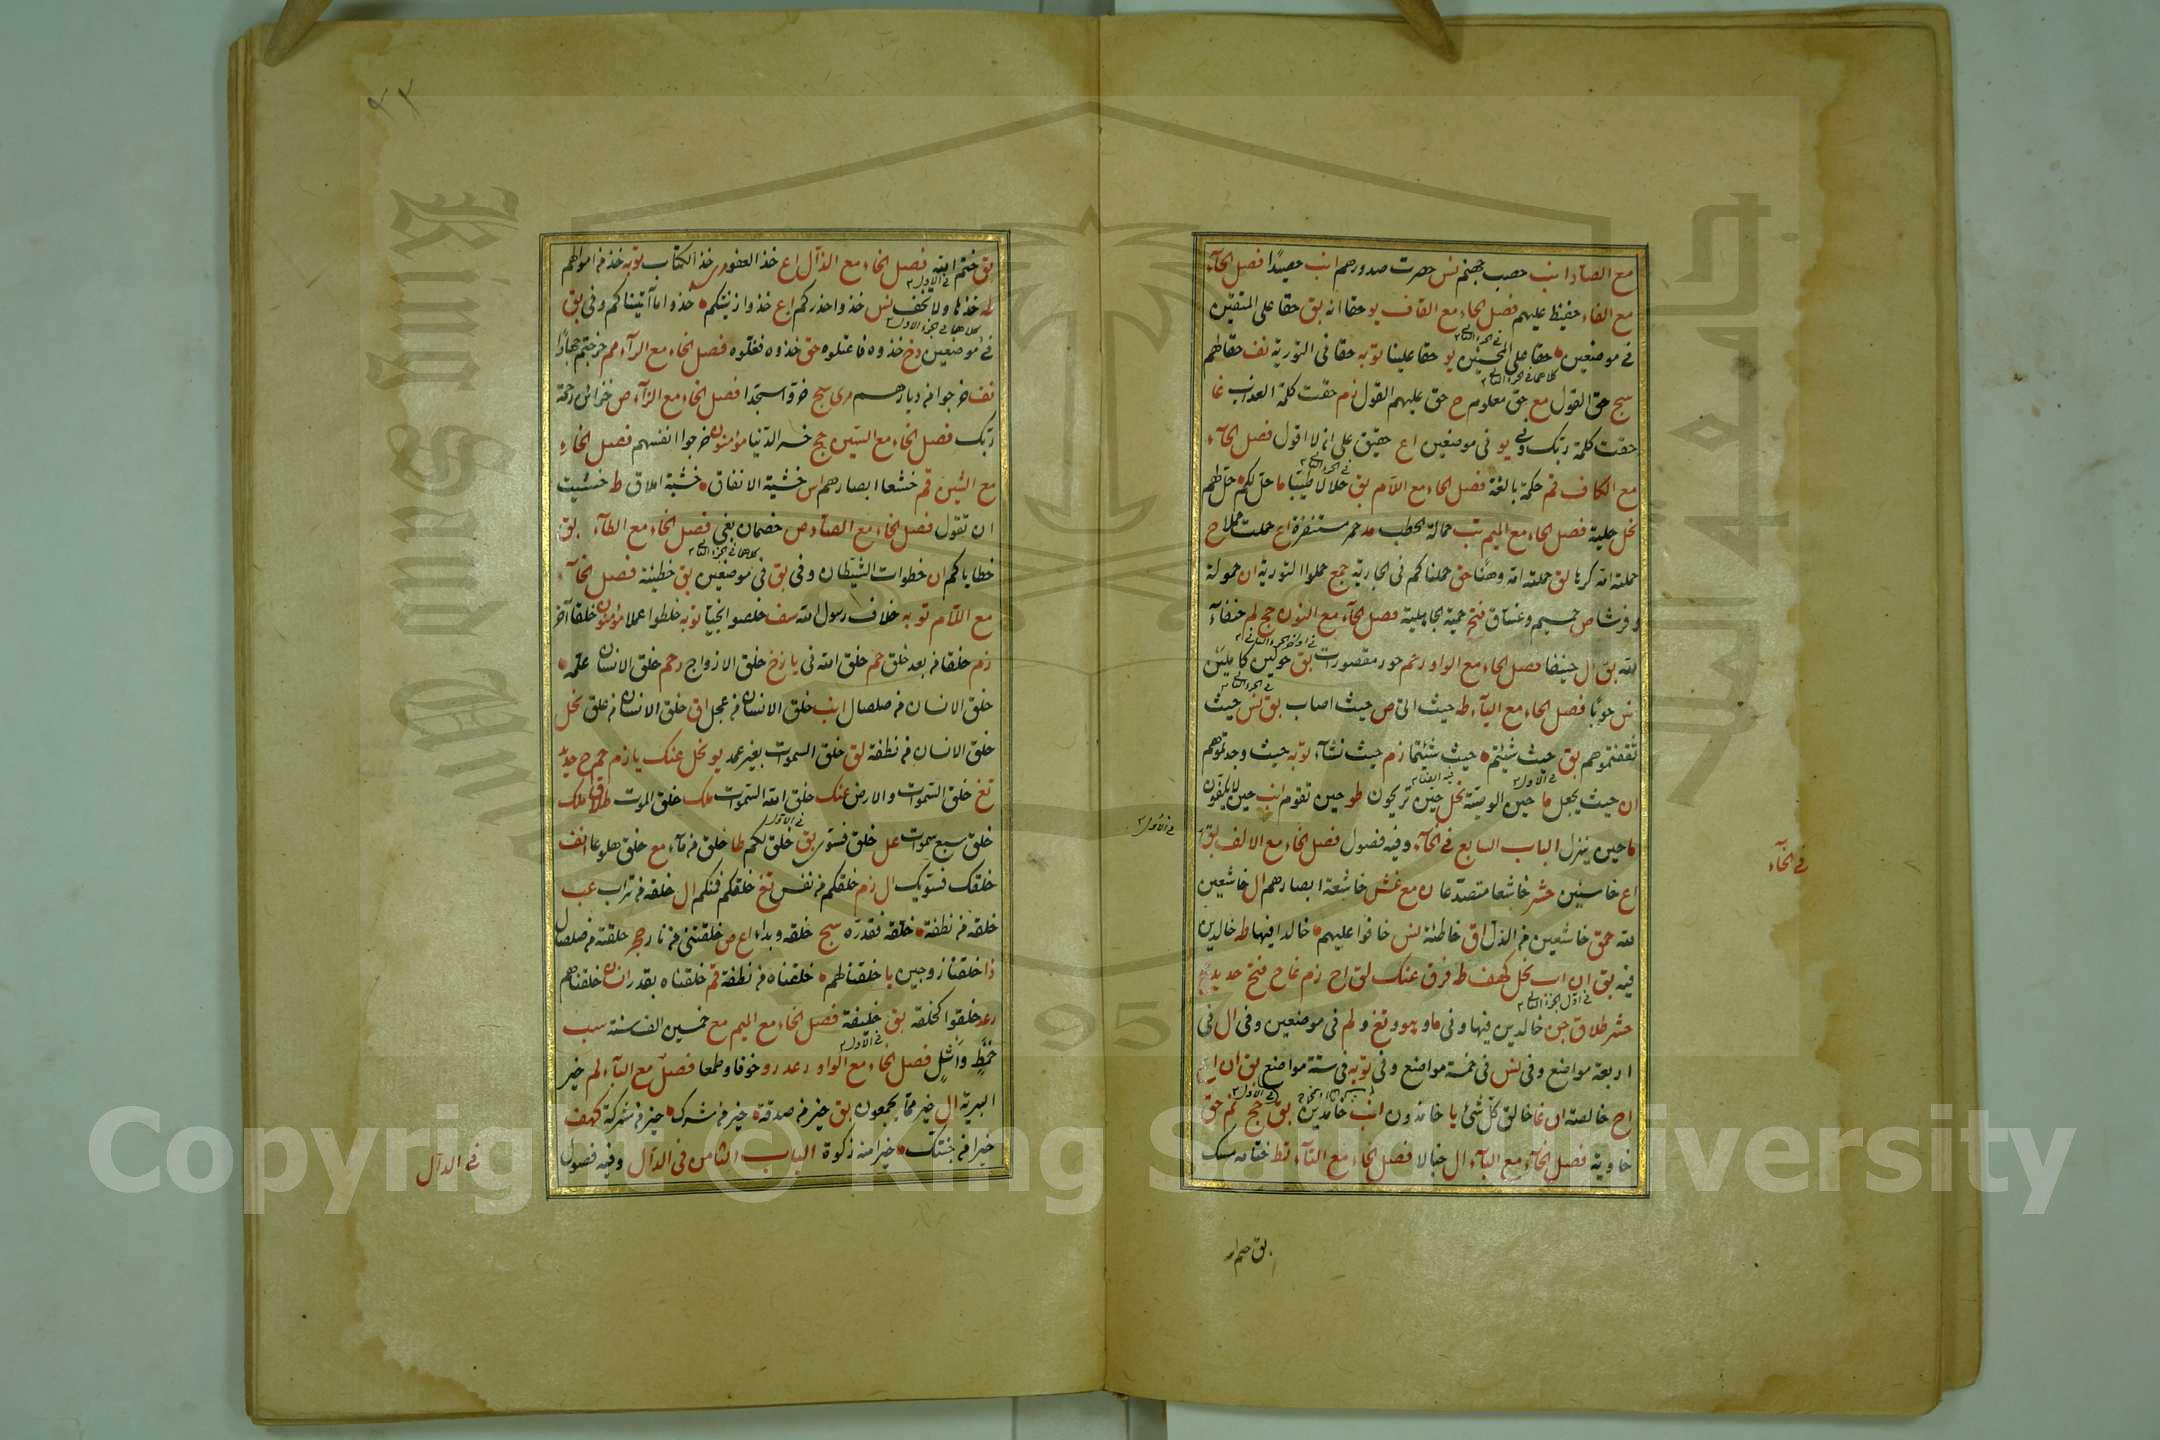 مع الصآد انب حصب جهنم نس حصرت صدورهم انب حصيدًا فصل الحآء
مع الفاء حفيظ عليهم فصل الحاء مع القاف يو حقا انه بق حقا على المتقين
في موضعين حقا على المحسنين يو حقا علينا توبه حقا في التورية نف حقا لهم
سج حق القول مع حق معلوم ح حق عليهم القول زم حقت كلمة العذاب غا
حقت كلمة ربك وفي يو في موضعين اع حقيق على ان لا اقول فصل الحآء
مع الكاف قم حكمة بالغة فصل الحاء مع اللآم بق حلالا طيبا ما حل لكم حل لهم
نحل حلية فصل الحاء مع الميم تب حمالة الحطب مد حمر مستنفرة اع حملت حملا ح
حملته امه كرها لق حملته امه وهنا حق حملناكم في الجارية جمع حملوا التورية ان حمولة
وفرشا ص حميم وغساق فتح حمية الجاهلية فصل الحآء مع النون حج لم حنفآء
لله بق ال حنيفا فصل الحاء مع الواو رحم حور مقصورات بق حولين كاملين
نس حوبًا فصل الحاء مع اليآء طه حيث اتى ص حيث اصاب بق نس حيث
ثقفتموهم بق حيث شئتم حيث شئتما زم حيث نشآء توبه حيث وجدتموهم
ان حيث يجعل ما حين الوصية نحل حين تريحون طو حين تقوم انب حين لا يكفون
ما حين ينزل الباب السابع في الخآء وفيه فصول فصل الخاء مع الالف بق
اع خاسئين حشر خاشعا متصدعا ن مع غش خاشعة ابصارهم ال خاشعين
لله حمق خاشعين من الذل اق خاطئة نس خافوا عليهم خالدا فيها طه خالدين
فيه بق ان اب نحل كهف ط فرق عنك لق اح زم غا ح فتح حديد
حشر طلاق جن خالدين فيها وفي ما وهو وتغ ولم في موضعين وفي ال في
اربعة مواضع وفي نس في خمسة مواضع وفي توبه في ستة مواضع بق ان
اح خالصة ان غا خالق كل شئ يا خامدون انب خامدين بق حج نم حق
خاوية فصل الخآء مع البآء ال خبالا فصل الخاء مع التآء تط ختامه مسك
في الخآء
في الاول
بق ختم الله فصل الخاء مع الذآل اع خذ العفو مري خذ الكتاب توبه خذ من اموالهم
طه خذها ولا تخف نس خذوا حذركم اع خذوا زينتكم خذوا ما آتيناكم وفي بق
في موضعين دخ خذوه فاعتلوه حق خذوه فغلوه فصل الخاء مع الرآء مم خرجتم جهادًا
نف خرجوا من ديارهم مري سج خروا سجدا فصل الخاء مع الزآء ص خزائن رحمة
ربك فصل الخاء مع السين حج خسر الدنيا مؤمنون خسروا انفسهم فصل الخاء
مع الشين قم خشعا ابصارهم اس خشية الانفاق خشية املاق ط خشيت
ان تقول فصل الخاء مع الصآد ص خصمان بغى فصل الخاء مع الطآء بق
خطاياكم ان خطوات الشيطان وفي بق في موضعين بق خطيئة فصل الخآء
مع اللآم توبه خلاف رسول الله سف خلصوا نجيا توبه خلطوا عملا مؤمنون خلقا آخر
زم خلقا من بعد خلق حم خلق الله في يا زخ خلق الازواج رحم خلق الانسان علمه
خلق الانسان من صلصال انب خلق الانسان من عجل اق خلق الانسان من علق نحل
خلق الانسان من نطفة لق خلق السموات بغير عمد يو نحل عنك يا زم حم ح حديد
تغ خلق السموات والارض عنك خلق الله السموات ملك خلق الموت طلاق ملك
خلق سبع سموات عل خلق فسوى بق خلق لكم طا خلق من مآء مع خلق هلوعا انف
خلقك فسويك ال زم خلقكم من نفس تغ خلقكم فمنكم ال خلقه من تراب عب
خلقه من نطفة خلقه فقدره سج خلقه وبدا اع ص خلقتني من نار حج خلقته من صلصال
ذا خلقنا زوجين يا خلقنا لهم خلقناه من نطفة قم خلقناه بقدر ان خلقناهم
رعد خلقوا كخلقه بق خليفة فصل الخاء مع الميم مع خمسين الف سنة سب
خمط واثل فصل الخاء مع الواو رعد رو خوفا وطمعا فصل مع اليآء لم خير
البرية ال خير مما يجمعون بق خير من صدقة خير من مشرك خير من مشركة كهف
خيرا من جنتك خيرا منه زكوة الباب الثامن في الدآل وفيه فصول
في الدآل
Copyright © King Saud University
King Saud University
1957